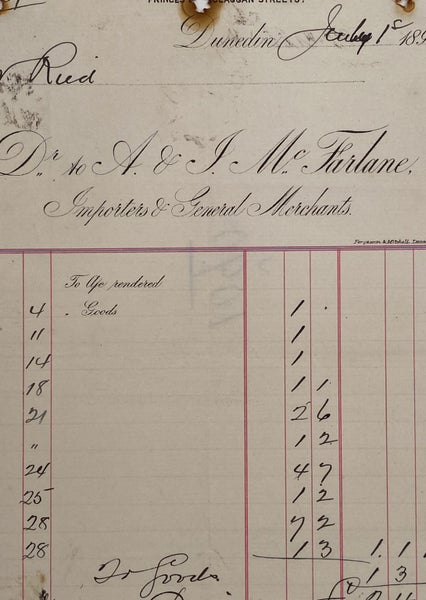 Dunedin July 1st 189
Ried
Dr. to A. & J. McFarlane,
Importers & General Merchants.
Fergusson & Mitchell
To A/c rendered
4 " Goods 1 .
11 1
14 1
18 1 1
21 2 6
" 1 2
24 4 7
25 1 2
28 7 2
28 1 3 1. 1
To Goods 1 3